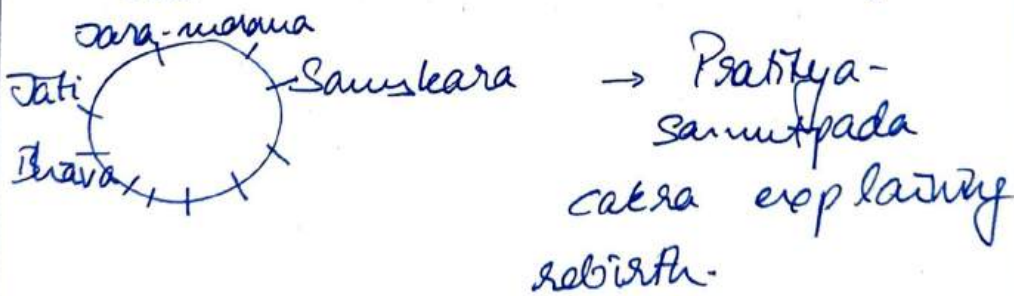 Jara-marana
Jati
Samskara → Pratitya-
samutpada
Bhava
cakra explaining
rebirth.